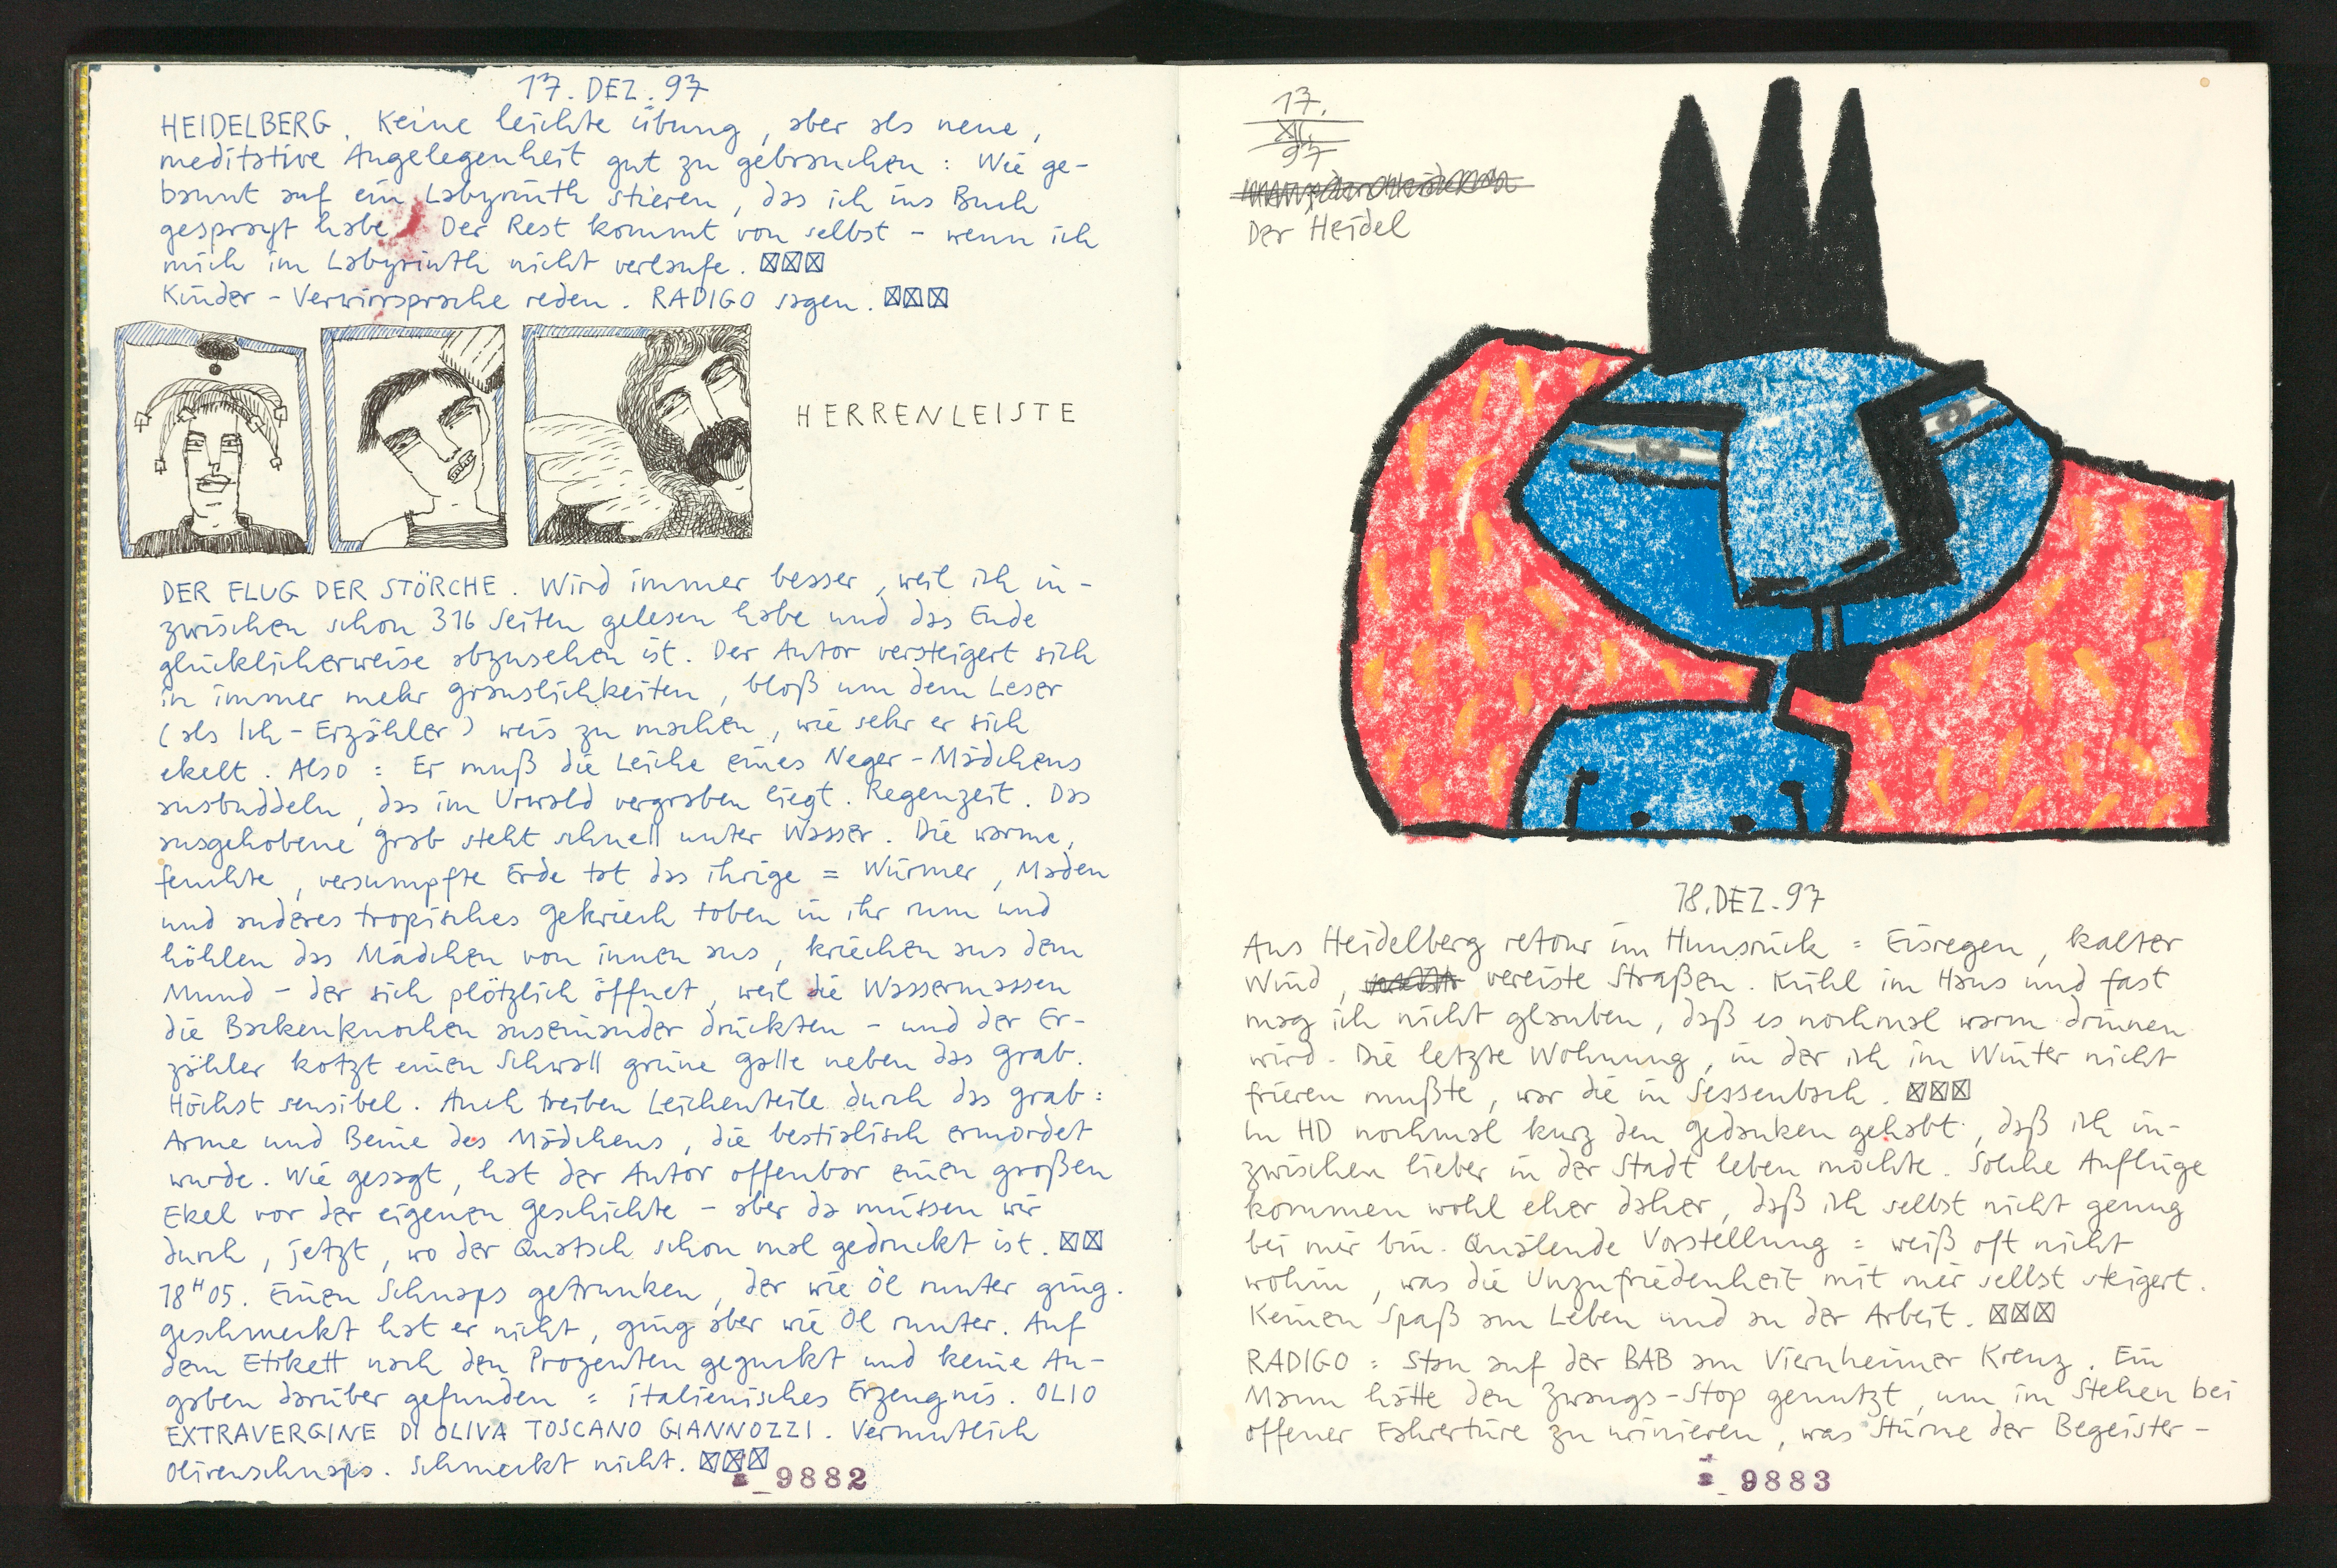 17. DEZ. 97
HEIDELBERG. Keine leichte Übung, aber als neue,
meditative Angelegenheit gut zu gebrauchen : Wie ge-
bannt auf ein Labyrinth stieren, das ich ins Buch
gesprayt habe. Der Rest kommt von selbst - wenn ich
mich im Labyrinth nicht verlaufe. ☒☒☒
Kinder-Verwirrsprache reden. RADIGO sagen. ☒☒☒
HERRENLEISTE
DER FLUG DER STÖRCHE. Wird immer besser, weil ich in-
zwischen schon 316 Seiten gelesen habe und das Ende
glücklicherweise abzusehen ist. Der Autor versteigert sich
in immer mehr Grauslichkeiten, bloß um dem Leser
(als Ich-Erzähler) weis zu machen, wie sehr er sich
ekelt. Also = Er muß die Leiche eines Neger-Mädchens
ausbuddeln, das im Urwald vergraben liegt. Regenzeit. Das
ausgehobene Grab steht schnell unter Wasser. Die warme,
feuchte, versumpfte Erde tat das ihrige = Würmer, Maden
und anderes tropisches Gekriech toben in ihr rum und
höhlen das Mädchen von innen aus, kriechen aus dem
Mund - der sich plötzlich öffnet, weil die Wassermassen
die Backenknochen auseinander drückten - und der Er-
zähler kotzt einen Schwall grüne Galle neben das Grab.
Höchst sensibel. Auch treiben Leichenteile durch das Grab :
Arme und Beine des Mädchens, die bestialisch ermordet
wurde. Wie gesagt, hat der Autor offenbar einen großen
Ekel vor der eigenen Geschichte - aber da müssen wir
durch, jetzt, wo der Quatsch schon mal gedruckt ist. ☒☒
18H05. Einen Schnaps getrunken, der wie Öl runter ging.
Geschmeckt hat er nicht, ging aber wie Öl runter. Auf
dem Etikett nach den Prozenten geguckt und keine An-
gaben darüber gefunden = italienisches Erzeugnis. OLIO
EXTRAVERGINE DI OLIVA TOSCANO GIANNOZZI. Vermutlich
Olivenschnaps. Schmeckt nicht. ☒☒☒
9882
17.
XII.
97
Der Heidel
18. DEZ. 97
Aus Heidelberg retour im Hunsrück = Eisregen, kalter
Wind, vereiste Straßen. Kühl im Haus und fast
mag ich nicht glauben, daß es nochmal warm drinnen
wird. Die letzte Wohnung, in der ich im Winter nicht
frieren mußte, war die in Sessenbach. ☒☒☒
In HD nochmal kurz den Gedanken gehabt, daß ich in-
zwischen lieber in der Stadt leben möchte. Solche Auflüge
kommen wohl eher daher, daß ich selbst nicht genug
bei mir bin. Quälende Vorstellung = weiß oft nicht
wohin, was die Unzufriedenheit mit mir selbst steigert.
Keinen Spaß am Leben und an der Arbeit. ☒☒☒
RADIGO = Stau auf der BAB am Viernheimer Kreuz. Ein
Mann hätte den Zwangs-Stop genutzt, um im Stehen bei
offener Fahrertüre zu urinieren, was Stürme der Begeister-
9883